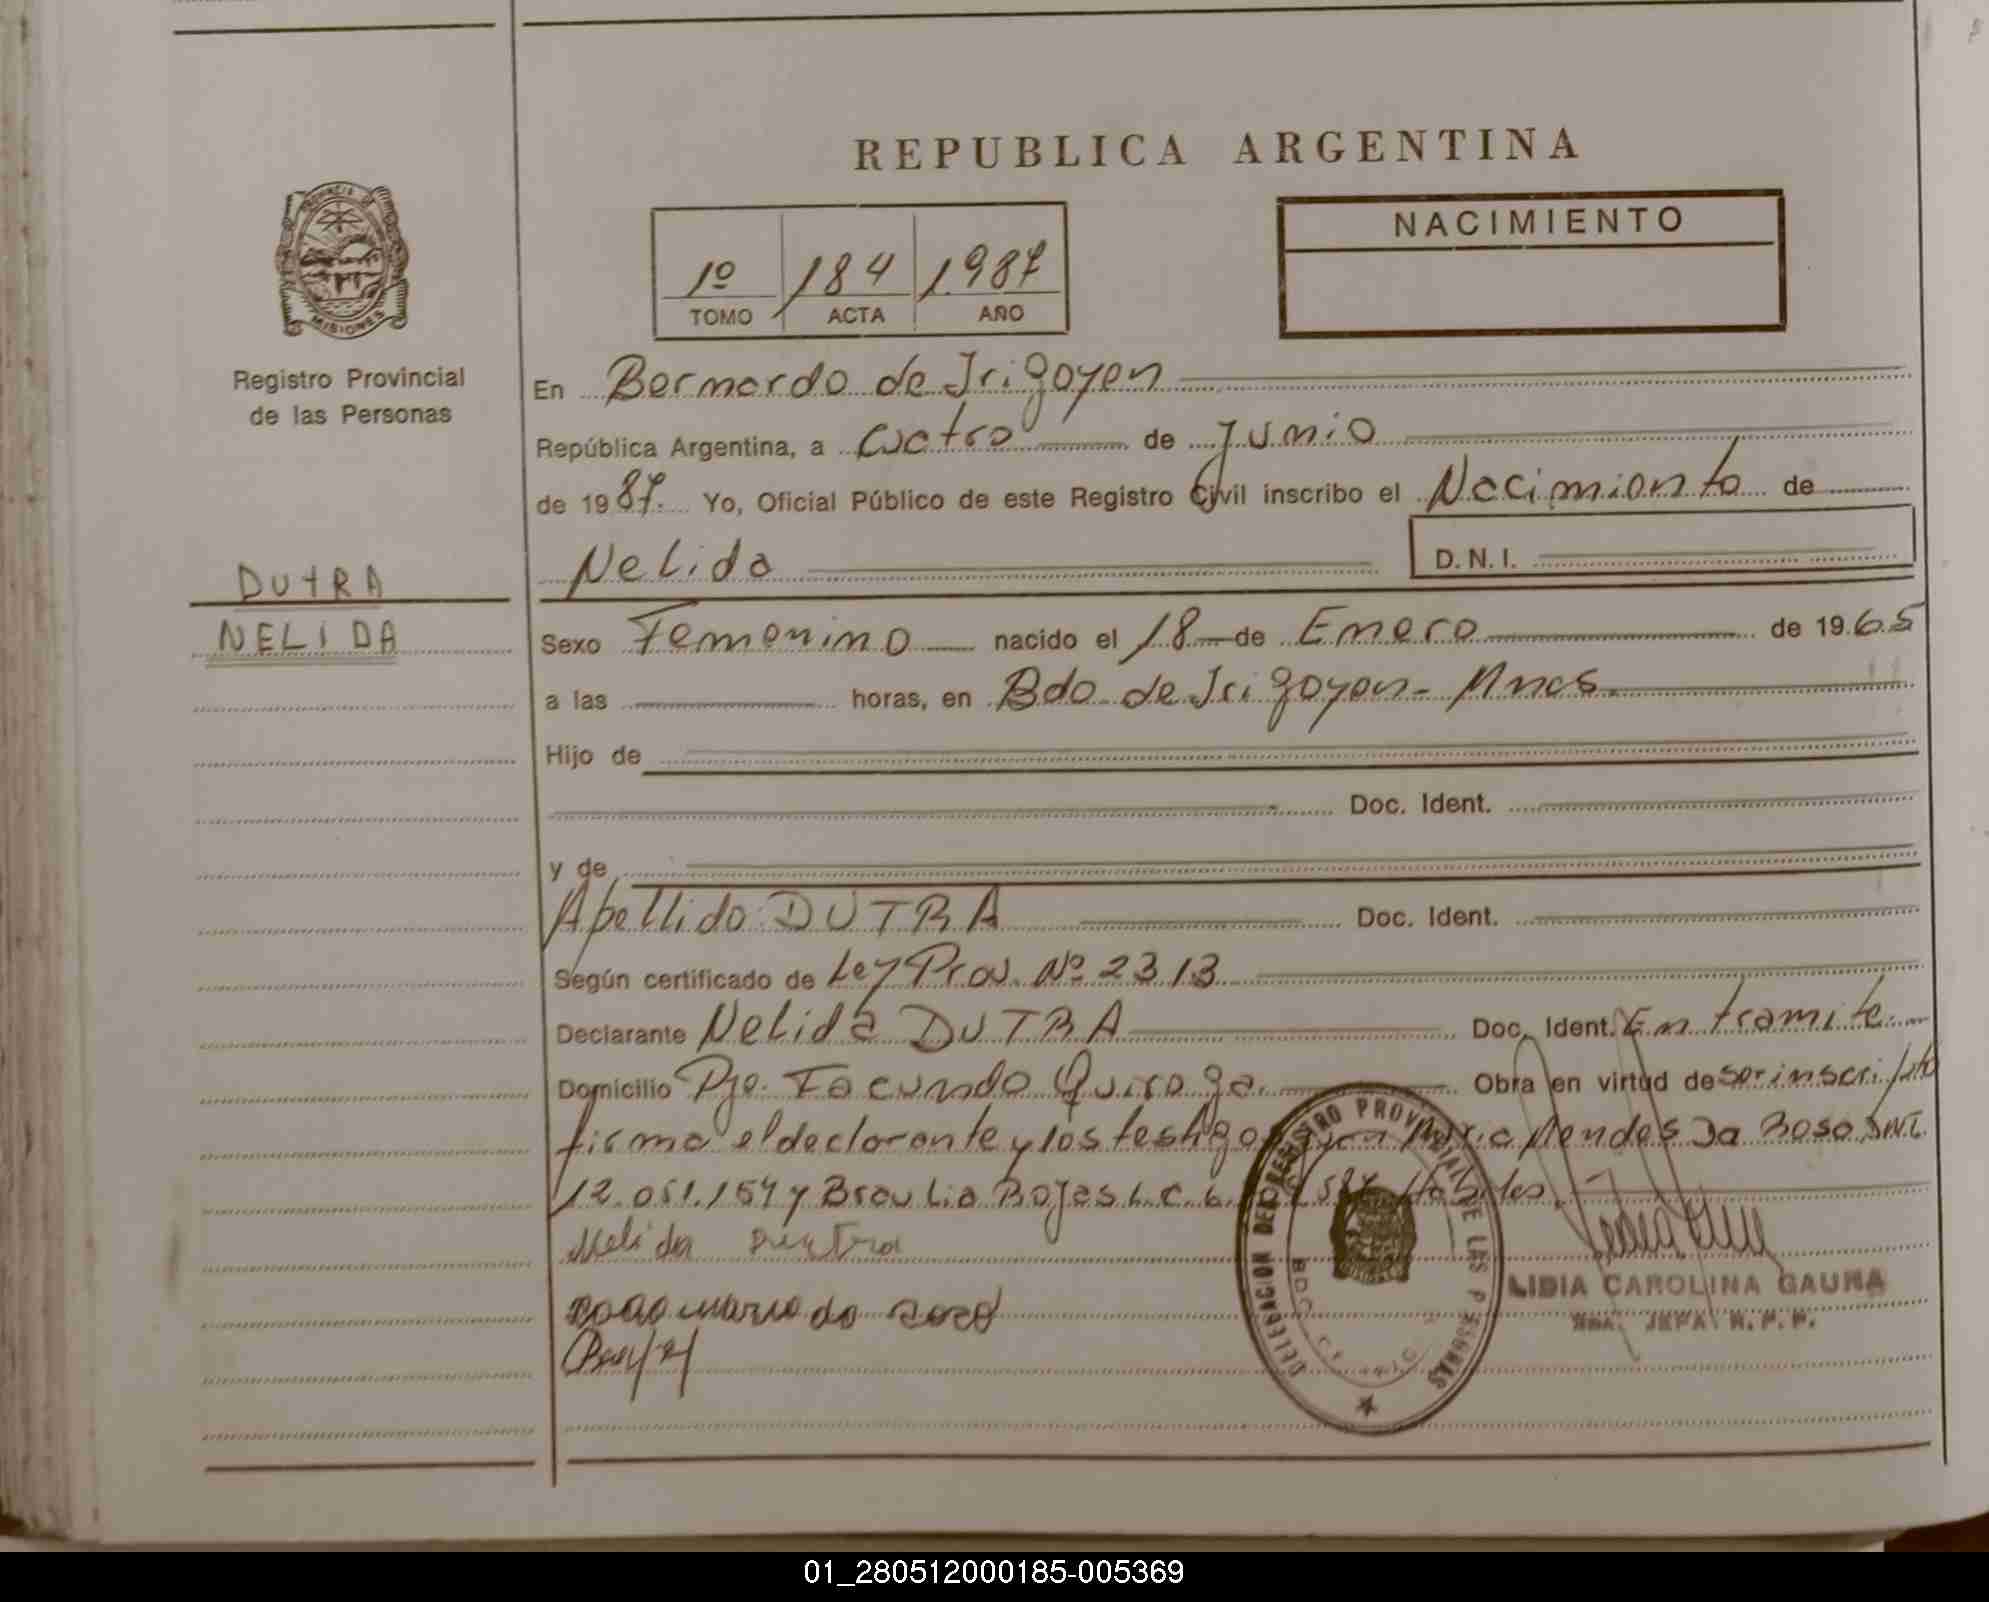 REPUBLICA ARGENTINA
NACIMIENTO
1º 184 1.987
TOMO ACTA AÑO
PROVINCIA DE MISIONES
Registro Provincial
de las Personas
DUTRA
NELIDA
En Bernardo de Irigoyen
República Argentina, a cuatro de junio
de 1987. Yo, Oficial Público de este Registro Civil inscribo el Nacimiento de
Nelida D.N.I.
Sexo Femenino nacido el 18 de Enero de 1965
a las horas, en Bdo de Irigoyen - Mnes.
Hijo de
Doc. Ident.
y de
Apellido DUTRA Doc. Ident.
Según certificado de Ley Prov. Nº 2313
Declarante Nelida DUTRA Doc. Ident. En tramite.
Domicilio Pje. Facundo Quiroga. Obra en virtud de ser inscripto
firma el declarante y los testigos Mendes Da Rosa DNI.
12.051.154 y Braulia Rojas L.C. 6.
Nelida Dutra
DELEGACION DEL REGISTRO PROVINCIAL DE LAS PERSONAS
LIDIA CAROLINA GAUNA
JEFA R.P.P.
01_280512000185-005369